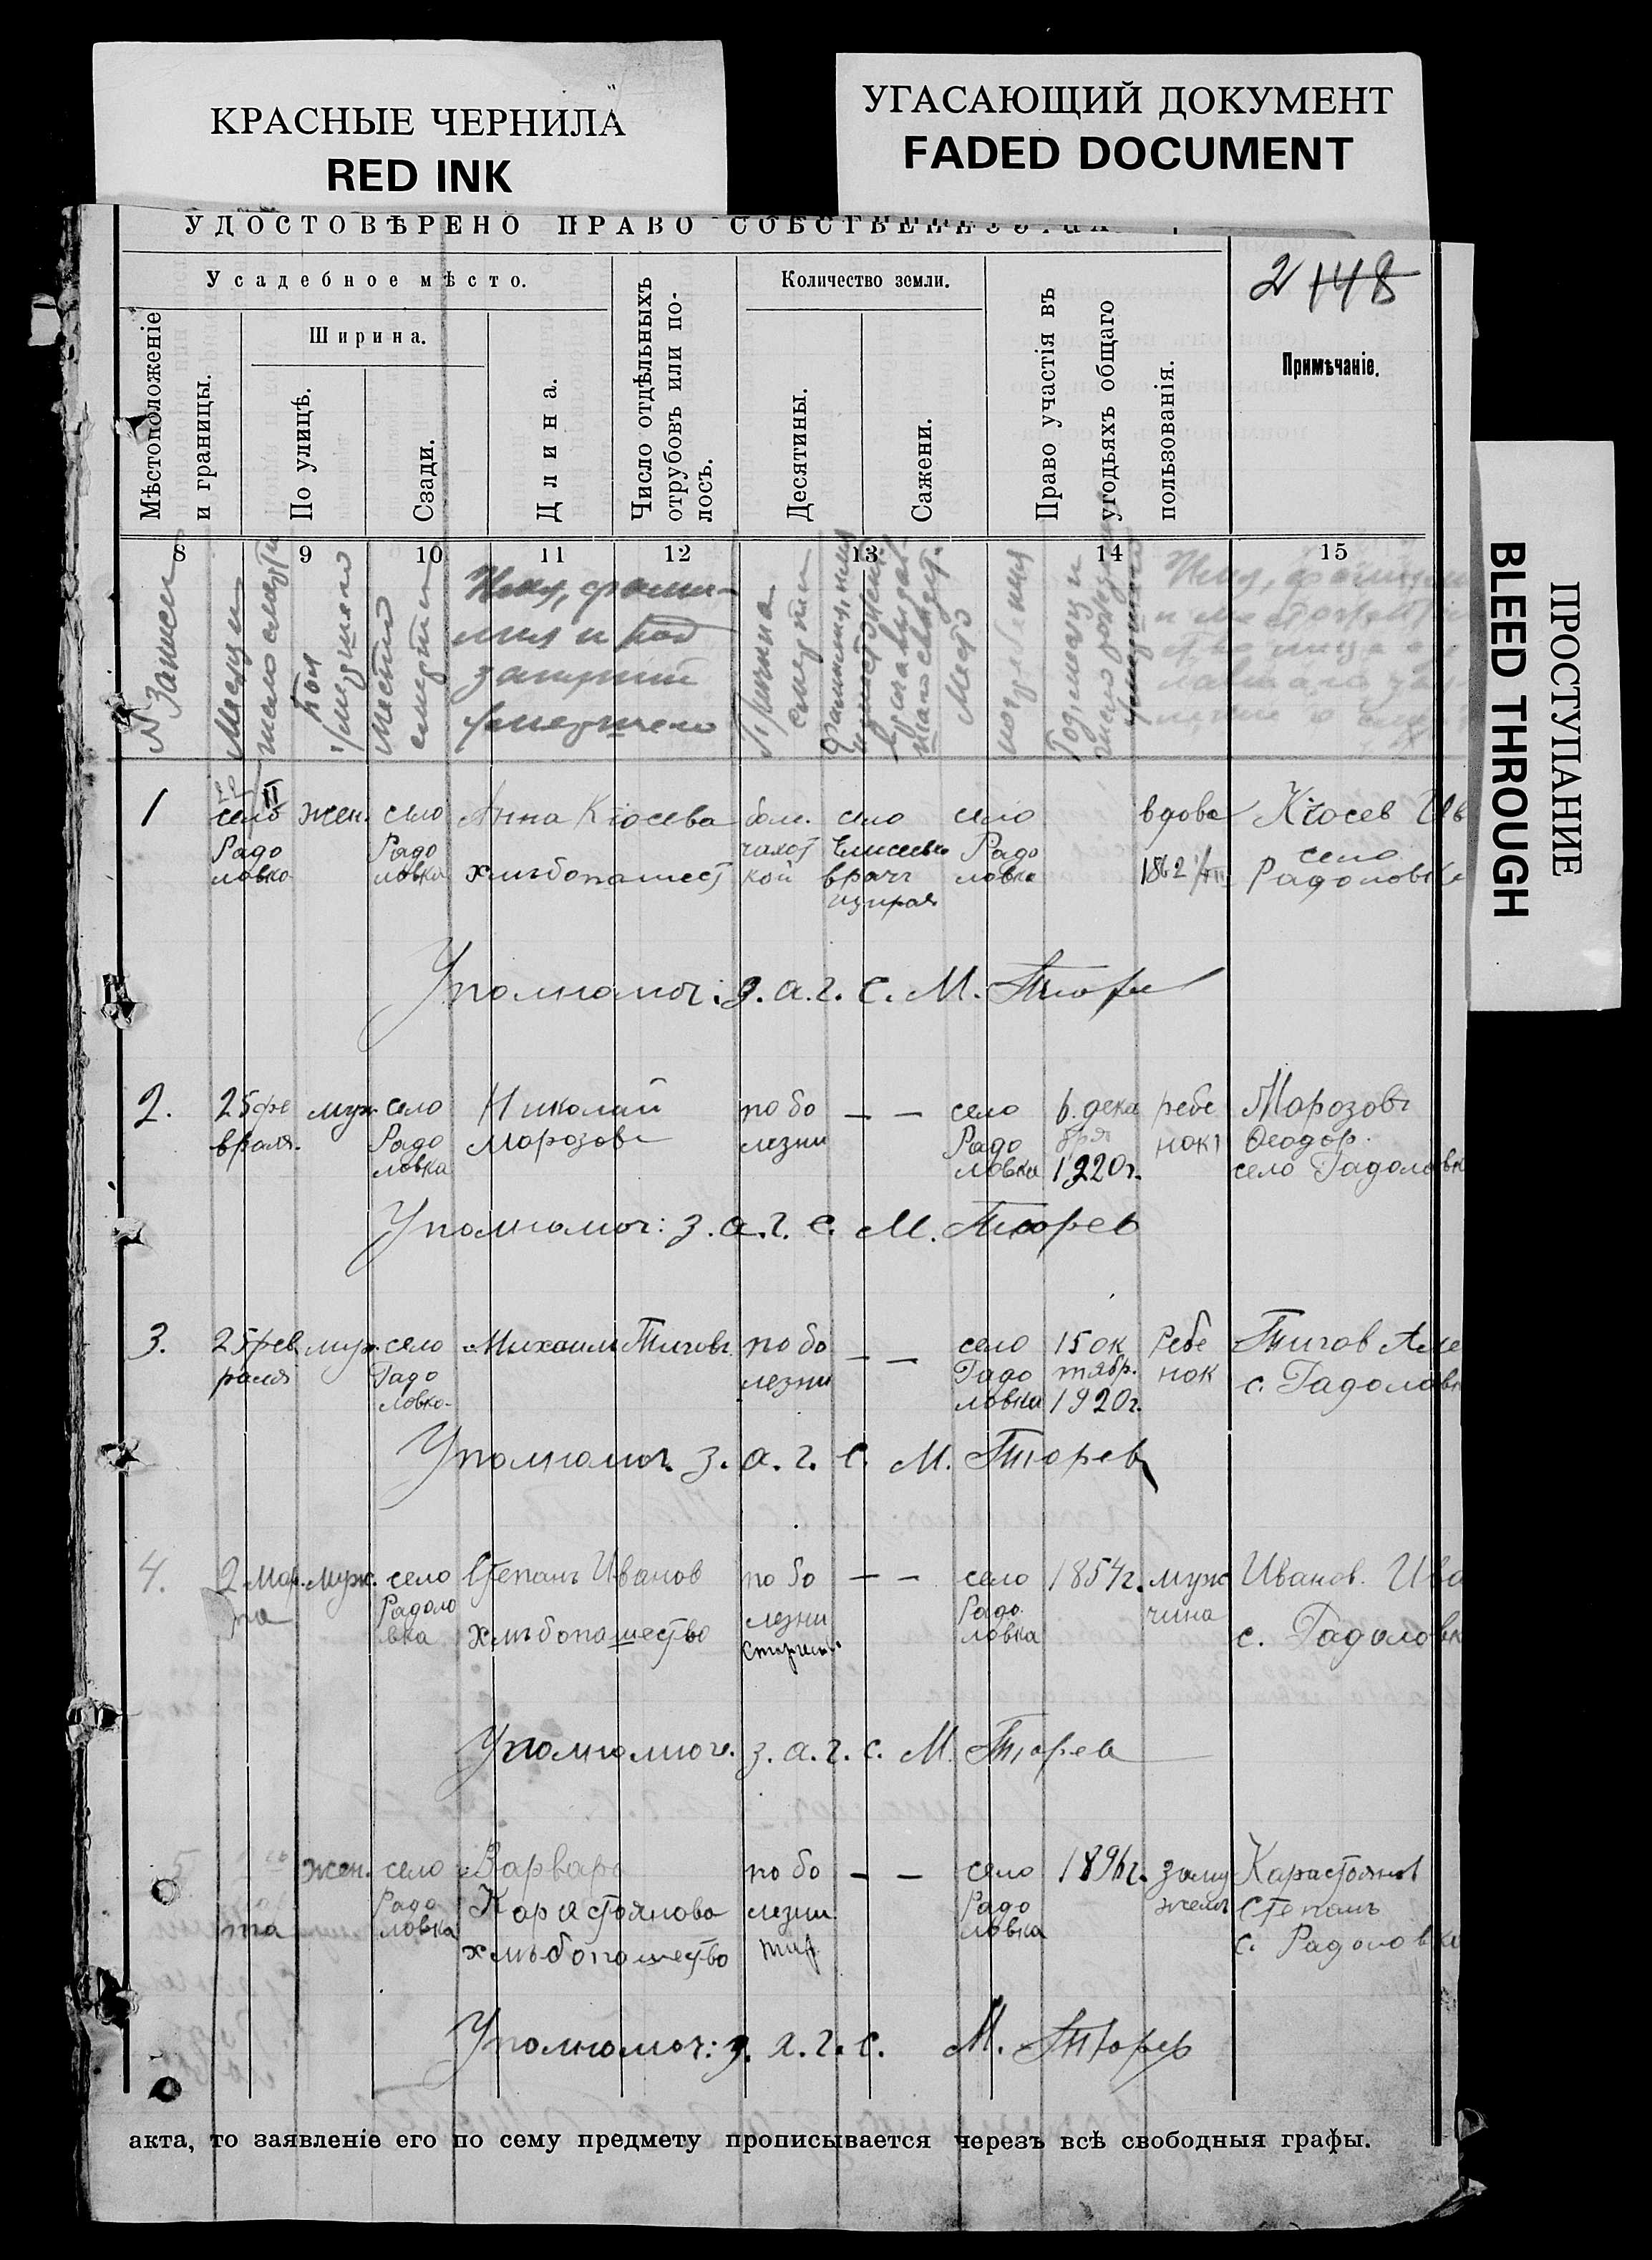 КРАСНЫЕ ЧЕРНИЛА
RED INK
УГАСАЮЩИЙ ДОКУМЕНТ
FADED DOCUMENT
ПРОСТУПАНИЕ
BLEED THROUGH
УДОСТОВѢРЕНО ПРАВО
2148
Усадебное мѣсто.
Количество земли.
Ширина.
Мѣстоположеніе
и границы.
По улицѣ.
Сзади.
Длина.
Число отдѣльныхъ
отрубовъ или по-
лосъ.
Десятины.
Сажени.
Право участія въ
угодьяхъ общаго
пользованія.
Примѣчаніе.
8 9 10 11 12 13 14 15
№ Записи
Месяц и
число смерти
Пол
умершего
Место
смерти
Имя, фами-
лия и род
занятий
умершего
Причина
смерти
Место
погребения
Год, месяц и
число рождения
умершего
Имя, фамилия
1 22/II село Радо ловка жен. село Радо ловка Анна Кіосева хлѣбопашест бол. чахот кой село врачъ село Радо ловка вдова 1862 Кіосев Ив село Радоловка
Уполномоч: з.а.г.с. М. Тюре
2. 25 фе враля. муж. село Радо ловка Николай Морозовъ по бо лезни — — село Радо ловка 6. дека бря 1920г. ребе нокъ Морозовъ Ѳеодор. село Радоловк
Уполномоч: з.а.г.с. М. Тюрев
3. 25 фев раля муж. село Радо ловка Михаил Тиговъ по бо лезни — — село Радо ловка 15 ок тябр. 1920г. Ребе нок Тигов Але с. Радоловк
Уполномоч. з.а.г.с. М. Тюрев
4. 2 мар. та муж. село Радоло вка Степанъ Иванов хлѣбопашество по бо лезни село Радо ловка 1854г. муж чина Иванов. Ива с. Радоловк
Уполномоч. з.а.г.с. М. Тюрев
5 та жен. село Радо ловка Варвара Карастоянова хлѣбопашество по бо лезни тиф — — село Радо ловка 1896г. заму жемъ Карастоянов Степанъ с. Радоловка
Уполномоч: з.а.г.с. М. Тюрев
акта, то заявленіе его по сему предмету прописывается черезъ всѣ свободныя графы.